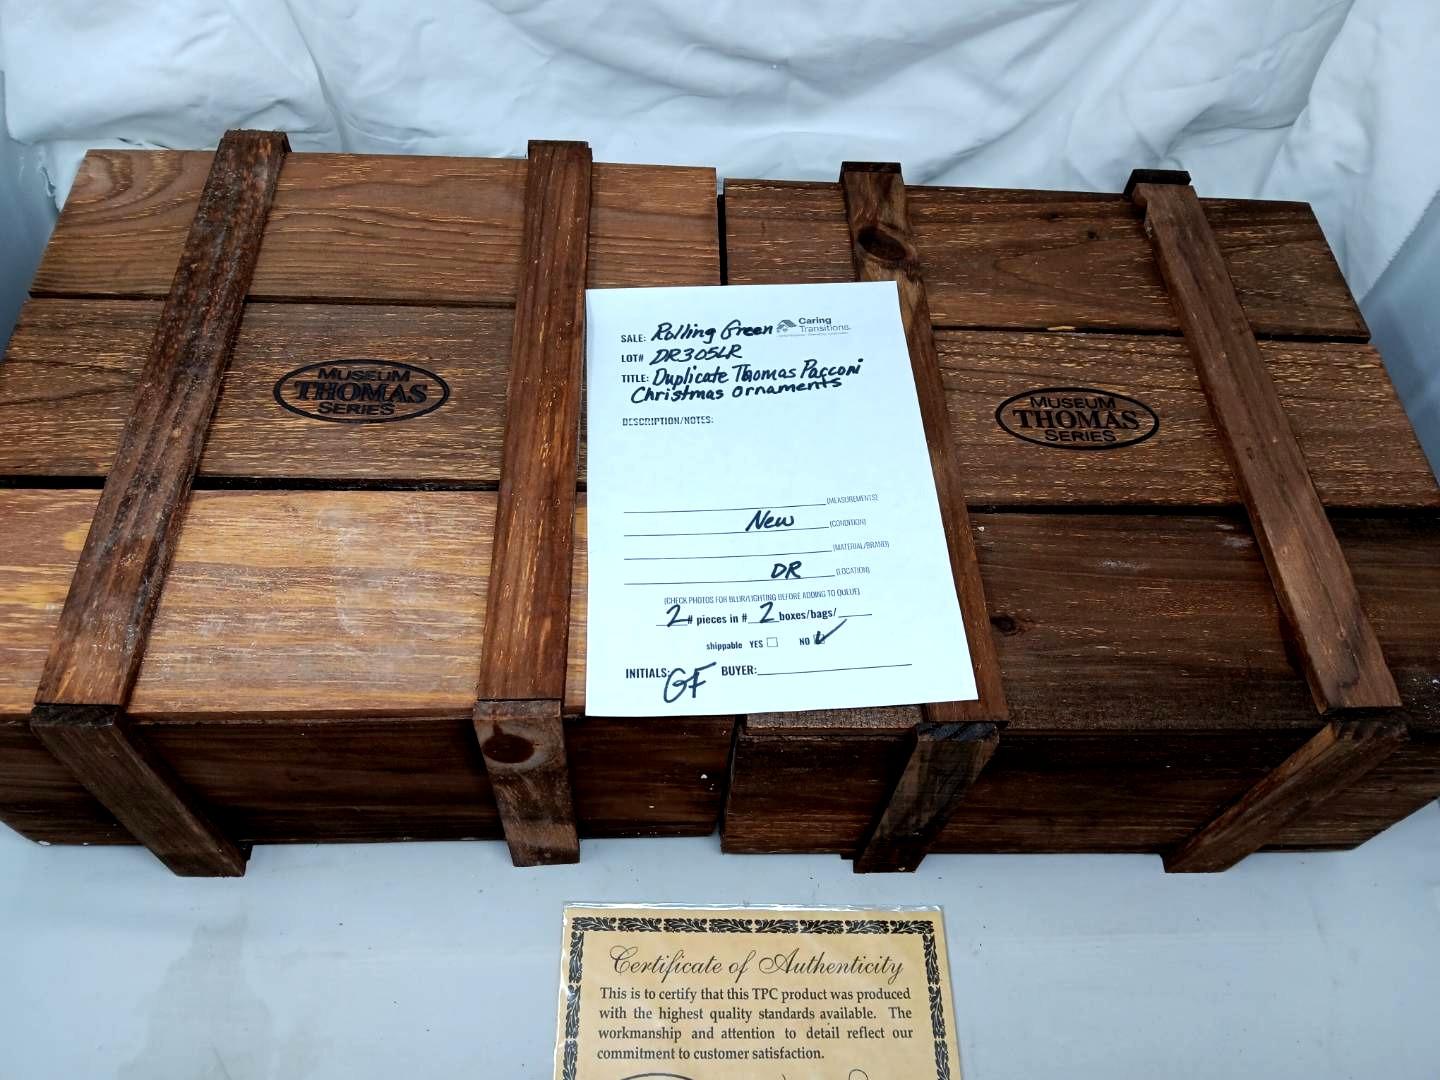 MUSEUM
THOMAS
SERIES
SALE: Rolling Green Caring Transitions
LOT# DR305LR
TITLE: Duplicate Thomas Pacconi
Christmas Ornaments
DESCRIPTION/NOTES:
(MEASUREMENTS)
New (CONDITION)
(MATERIAL/BRAND)
DR (LOCATION)
(CHECK PHOTOS FOR BLUR/LIGHTING BEFORE ADDING TO QUEUE)
2 # pieces in # 2 boxes/bags/
shippable YES NO
INITIALS: GF BUYER:
MUSEUM
THOMAS
SERIES
Certificate of Authenticity
This is to certify that this TPC product was produced
with the highest quality standards available. The
workmanship and attention to detail reflect our
commitment to customer satisfaction.